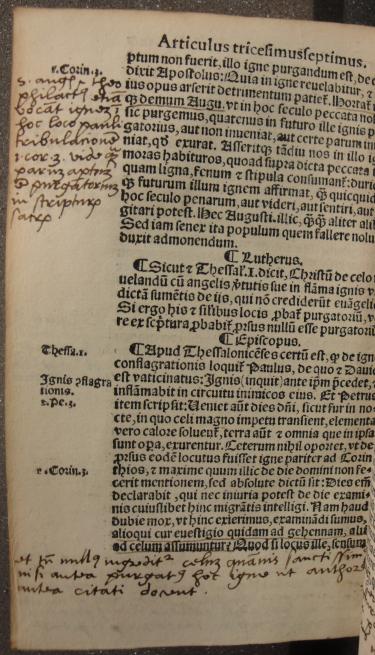 Articulus tricesimusseptimus.
ptum non fuerit, illo igne purgandum est, de q
1.Corin.3.
dixit Apostolus: Quia in igne reuelabitur, &
ius opus arserit detrimentum patiet̃. Hortat̃
q̃ demum Augu. vt in hoc seculo peccata no
sic purgemus, quatenus in futuro ille ignis p
gatorius, aut non inueniat, aut certe parum in
niat, qđ exurat. Asseritq; tādiu nos in illo ig
moras habituros, quoad supra dicta peccata
quam ligna, fenum & stipula consumant̃: duri
q̃ futurum illum ignem affirmat, q̃ quicquid
hoc seculo penarum, aut videri, aut sentiri, aut
gitari potest. Hec Augusti. illic, q̃q̃ aliter alib
Sed iam senex ita populum quem fallere nolu
duxit admonendum.
s. angl⁹ theo
philact⁹ etiā
vocāt igne
hoc loco pauli
tribulationē
1 cor 3. vide
parum aptum
purgatorium
in scripturꝭ
¶ Lutherus.
¶ Sicut & Thessal̃.1. dicit, Christū de celo r
uelandū cū angelis v̑tutis sue in flāma ignis v
dictā sumētis de iis, qui nō crediderūt euāgelio
Si ergo hic & silibus locis ꝓbat̃ purgatoriū, v
re ex scp̃tura ꝓbabit̃, ꝓrsus nullū esse purgatoriū
¶ Episcopus.
Thessa.1.
¶ Apud Thessalonicēses certū est, q̃ de igne
conflagrationis loquit̃ Paulus, de quo & Dauid
Ignis ꝯflagra
tionis.
est vaticinatus: Ignis (inquit) ante ip̃m p̃cedet, &
inflāmabit in circuitu inimicos eius. Et Petrus
2.Pe.3.
item scripsit: Ueniet aūt dies dñi, sicut fur in no
cte, in quo celi magno impetu transient, elementa
vero calore soluent̃, terra aūt & omnia que in ipsa
sunt opa, exurentur. Ceterum nihil oportet, vt de
ꝓrsus eodē locutus fuisset igne pariter ad Corin
1.Corin.3.
thios, & maxime quum illic de die domini non fe
cerit mentionem, sed absolute dictū sit: Dies em̃
declarabit, qui nec iniuria potest de die exami-
nis cuiuslibet hinc migrātis intelligi. Nam haud
dubie mox, vt hinc exierimus, examinādi sumus,
alioqui cur euestigio quidam ad gehennam, alii
ad celum assumuntur? Quod si locus ille, sensum
et tn̄ null⁹ ingredit̃ celum quamis sancti
nisi antea purgat⁹ hoc igne ut authores
antea citati docent.